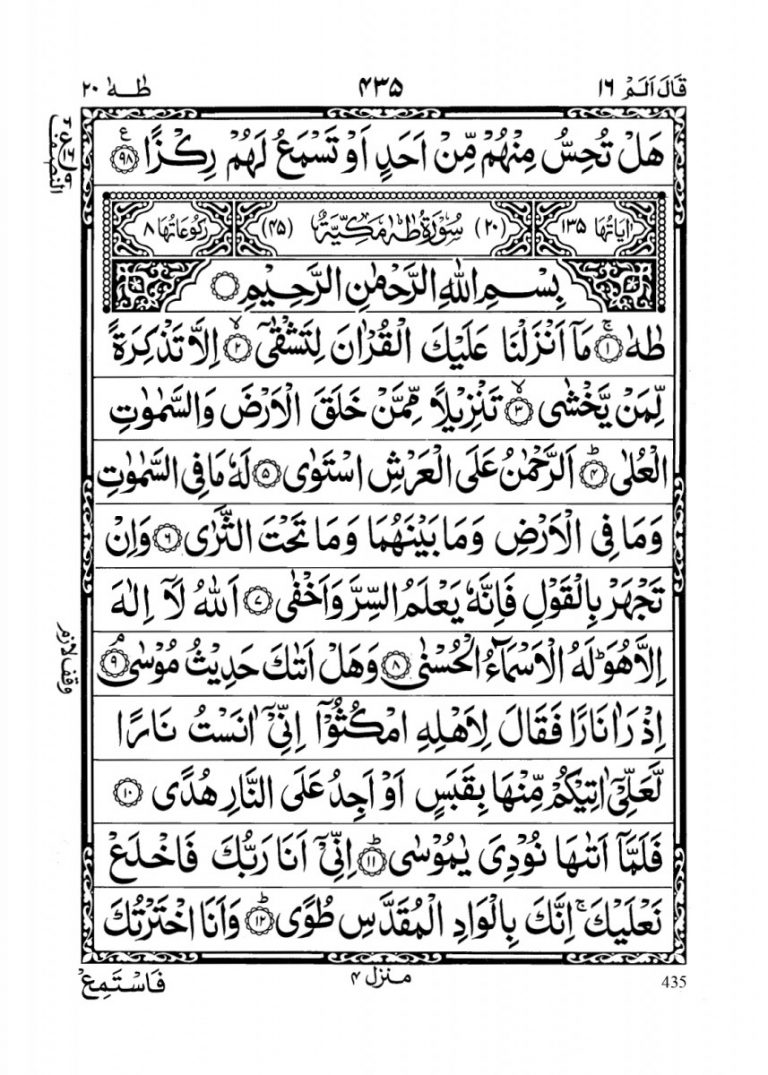 قَالَ اَلَمْ ١٦
۴۳۵
طٰهٰ ٢٠
هَلْ تُحِسُّ مِنْهُمْ مِّنْ اَحَدٍ اَوْ تَسْمَعُ لَهُمْ رِكْزًا ﴿٩٨﴾ ع
اٰيَاتُهَا ١٣٥ (٢٠) سُوْرَةُ طٰهٰ مَكِّيَّةٌ (۴۵) رُكُوْعَاتُهَا ٨
بِسْمِ اللّٰهِ الرَّحْمٰنِ الرَّحِيْمِ
طٰهٰ ﴿١﴾ۚ مَآ اَنْزَلْنَا عَلَيْكَ الْقُرْاٰنَ لِتَشْقٰٓى ﴿٢﴾ۙ اِلَّا تَذْكِرَةً
لِّمَنْ يَّخْشٰى ﴿٣﴾ۙ تَنْزِيْلًا مِّمَّنْ خَلَقَ الْاَرْضَ وَالسَّمٰوٰتِ
الْعُلٰى ﴿۴﴾ؕ اَلرَّحْمٰنُ عَلَى الْعَرْشِ اسْتَوٰى ﴿۵﴾ لَهٗ مَا فِى السَّمٰوٰتِ
وَمَا فِى الْاَرْضِ وَمَا بَيْنَهُمَا وَمَا تَحْتَ الثَّرٰى ﴿٦﴾ وَاِنْ
تَجْهَرْ بِالْقَوْلِ فَاِنَّهٗ يَعْلَمُ السِّرَّ وَاَخْفٰى ﴿٧﴾ اَللّٰهُ لَآ اِلٰهَ
اِلَّا هُوَؕ لَهُ الْاَسْمَآءُ الْحُسْنٰى ﴿٨﴾ وَهَلْ اَتٰىكَ حَدِيْثُ مُوْسٰى ﴿٩﴾ۘ
وقف لازم
اِذْ رَاٰ نَارًا فَقَالَ لِاَهْلِهِ امْكُثُوْٓا اِنِّىْٓ اٰنَسْتُ نَارًا
لَّعَلِّىْٓ اٰتِيْكُمْ مِّنْهَا بِقَبَسٍ اَوْ اَجِدُ عَلَى النَّارِ هُدًى ﴿١٠﴾
فَلَمَّآ اَتٰىهَا نُوْدِىَ يٰمُوْسٰى ﴿١١﴾ؕ اِنِّىْٓ اَنَا رَبُّكَ فَاخْلَعْ
نَعْلَيْكَۚ اِنَّكَ بِالْوَادِ الْمُقَدَّسِ طُوًى ﴿١٢﴾ؕ وَاَنَا اخْتَرْتُكَ
435
منزل ۴
فَاسْتَمِعْ